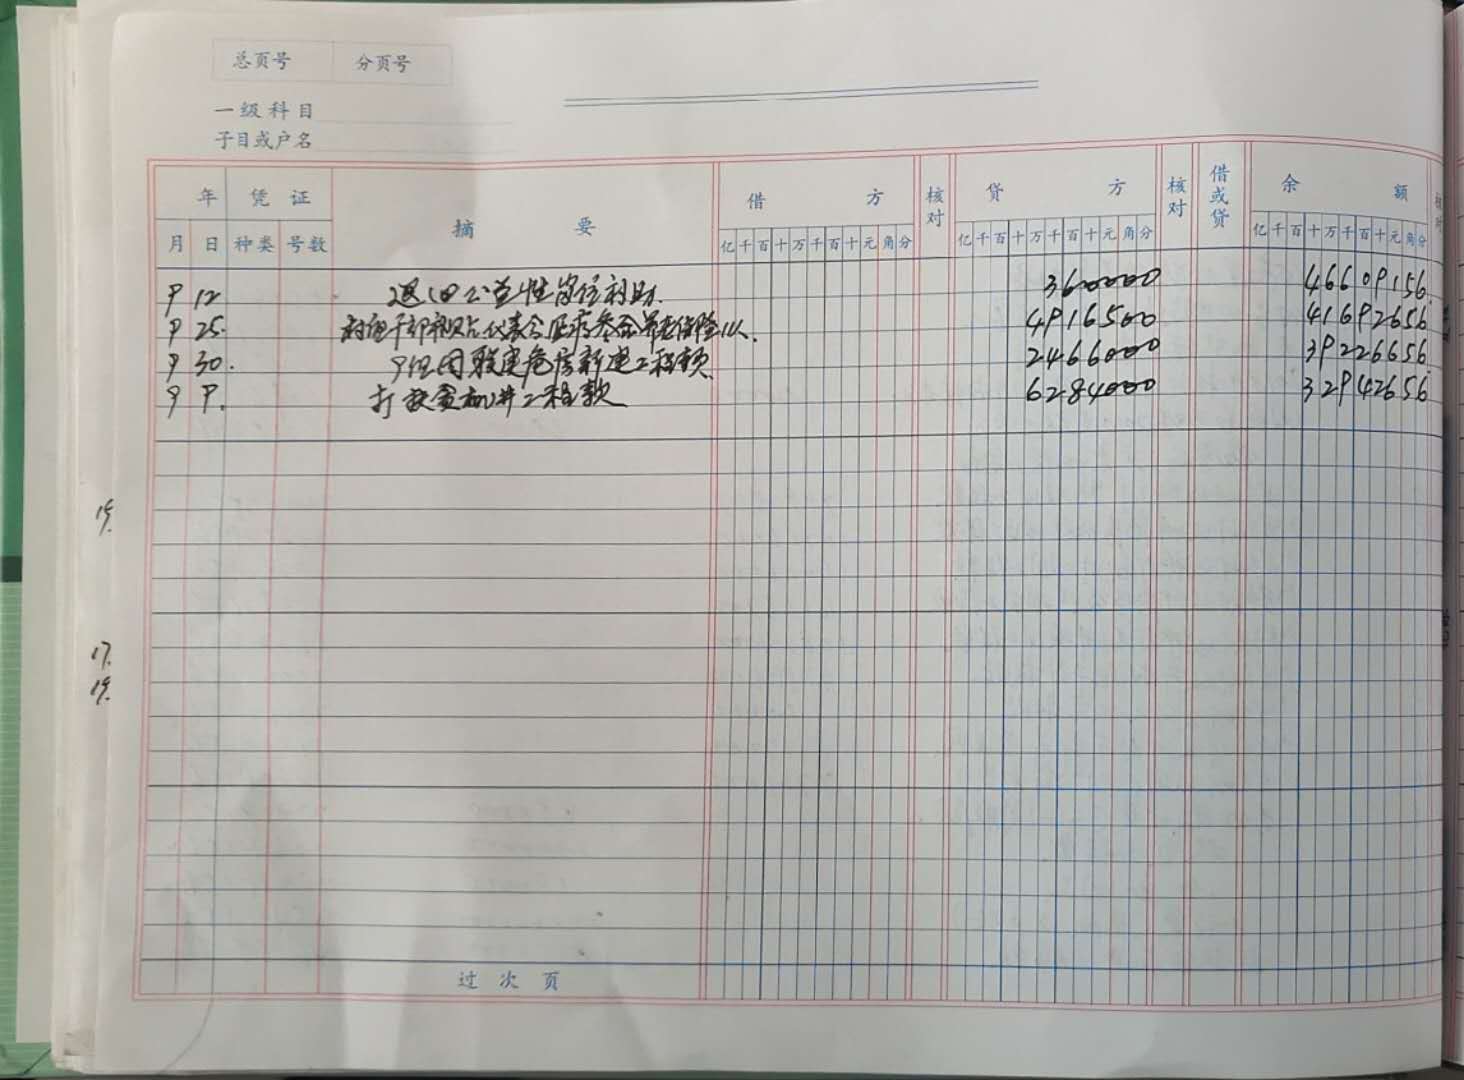 总页号 分页号
一级科目
子目或户名
年 凭证 摘要 借方 核对 贷方 核对 借或贷 余额 核对
月 日 种类 号数 亿千百十万千百十元角分 亿千百十万千百十元角分 亿千百十万千百十元角分
9 12 退回公益性岗位补助. 3600000 46609156.
9 25. 代表会医疗养老保险 4916500 41692656
9 30. 9组因联建危房新建工程款 2466000 39226656.
9 9. 打扶贫机井工程款 6284000 32942656
15.
17.
19.
过次页